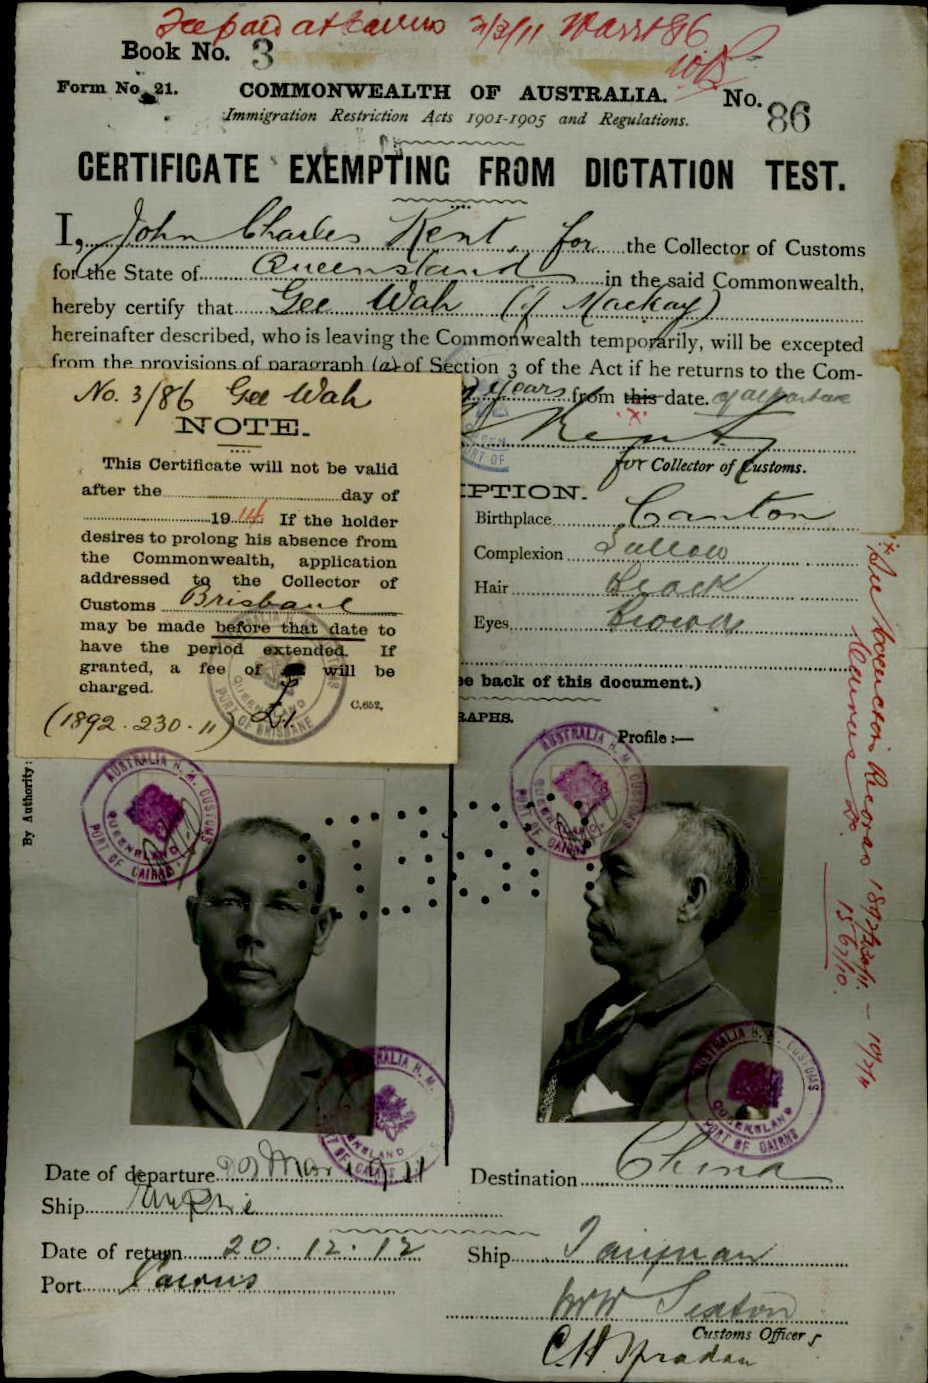 Fee paid at Cairns 2/3/11 Warrt 86
Book No. 3
Form No. 21.
COMMONWEALTH OF AUSTRALIA.
No. 86
Immigration Restriction Acts 1901-1905 and Regulations.
CERTIFICATE EXEMPTING FROM DICTATION TEST.
I, John Charles Kent, for the Collector of Customs
for the State of Queensland in the said Commonwealth,
hereby certify that Gee Wah (of Mackay)
hereinafter described, who is leaving the Commonwealth temporarily, will be excepted
from the provisions of paragraph (a) of Section 3 of the Act if he returns to the Com-
years from this date. of departure
Kent
for Collector of Customs.
No. 3/86 Gee Wah
NOTE.
This Certificate will not be valid
after the day of
1914 If the holder
desires to prolong his absence from
the Commonwealth, application
addressed to the Collector of
Customs Brisbane
may be made before that date to
have the period extended. If
granted, a fee of will be
charged. £1.
C.652,
(1892.230.11)
IPTION.
Birthplace Canton
Complexion Sallow
Hair Black
Eyes Brown
e back of this document.)
RAPHS.
Profile:—
By Authority:
AUSTRALIA H.M. CUSTOMS
QUEENSLAND
PORT OF BRISBANE
AUSTRALIA H.M. CUSTOMS
QUEENSLAND
PORT OF CAIRNS
AUSTRALIA H.M. CUSTOMS
QUEENSLAND
PORT OF CAIRNS
AUSTRALIA H.M.
AUSTRALIA H.M. CUSTOMS
QUEENSLAND
PORT OF CAIRNS
Date of departure Mar 1911
Destination China
Ship Empire
Date of return 20.12.12
Ship Taiyuan
Port Cairns
Customs Officer s